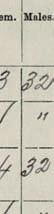 em. Males.
3 32
1 "
4 32